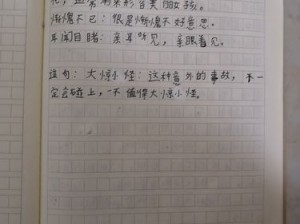 花，正常用来形容美丽女孩。
惭愧不已：很是惭愧不好意思。
耳闻目睹：亲耳听见，亲眼看见。
造句：大惊小怪：这种意外的事故，不一
定会碰上，不值得大惊小怪。